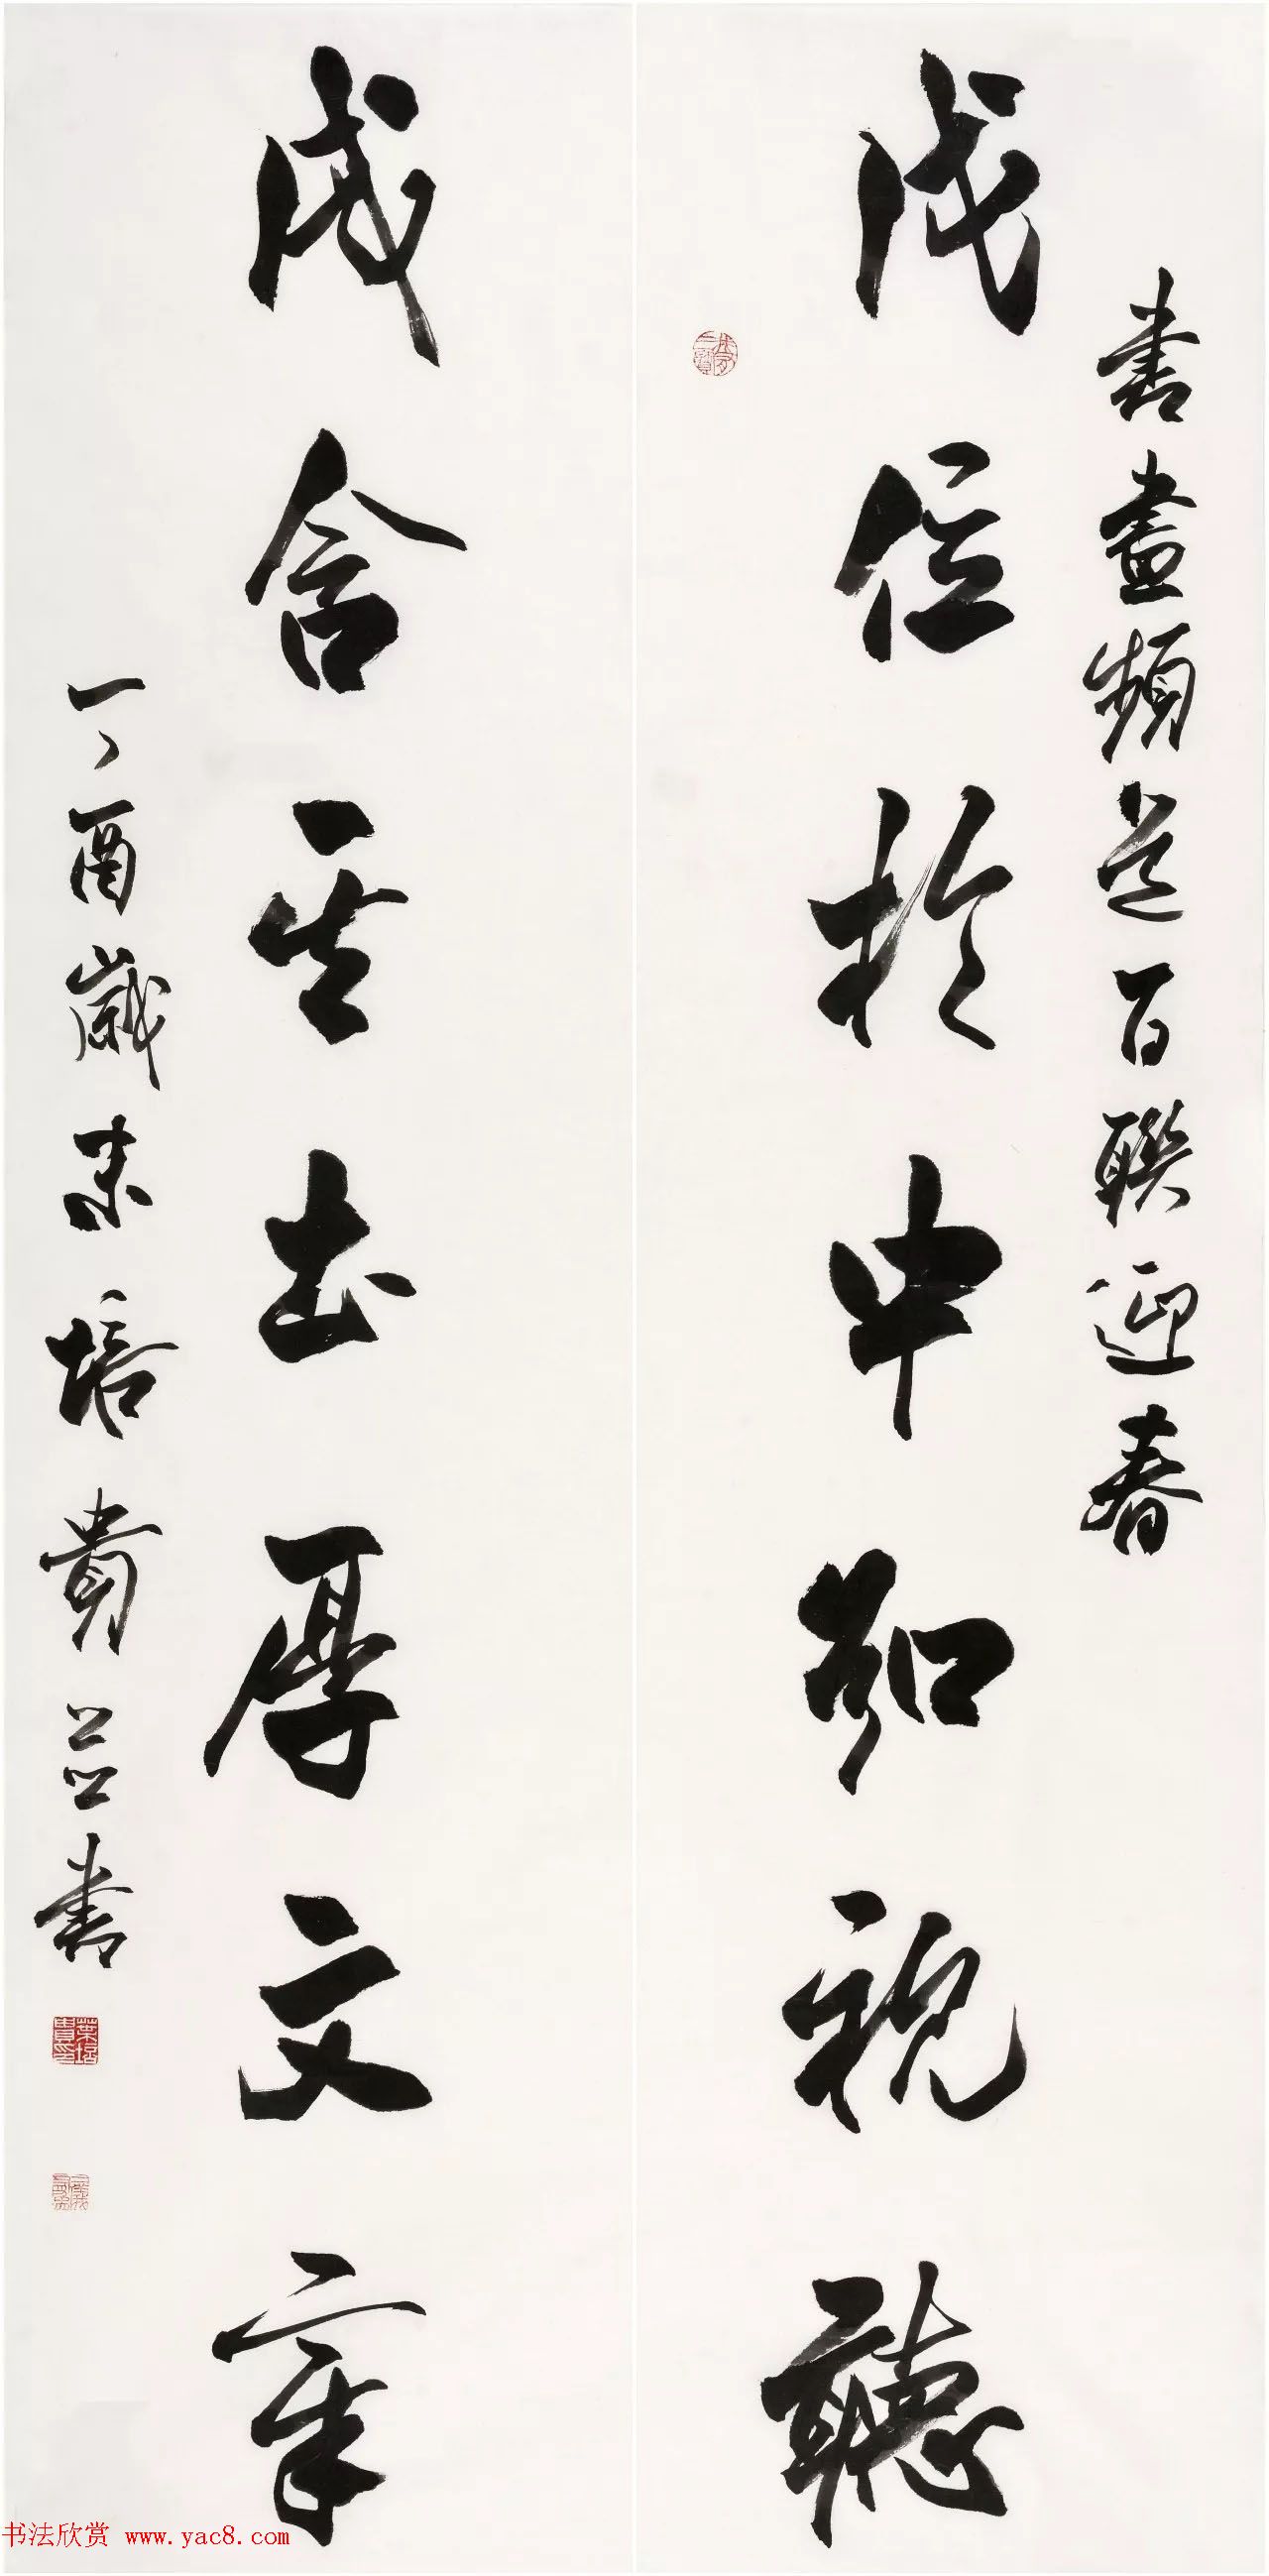 書畫頻道百聯迎春
戊位於中知視聽
戌含 厚文章
丁酉歲末培貴並書
葉培貴印
书法欣赏 www.yac8.com